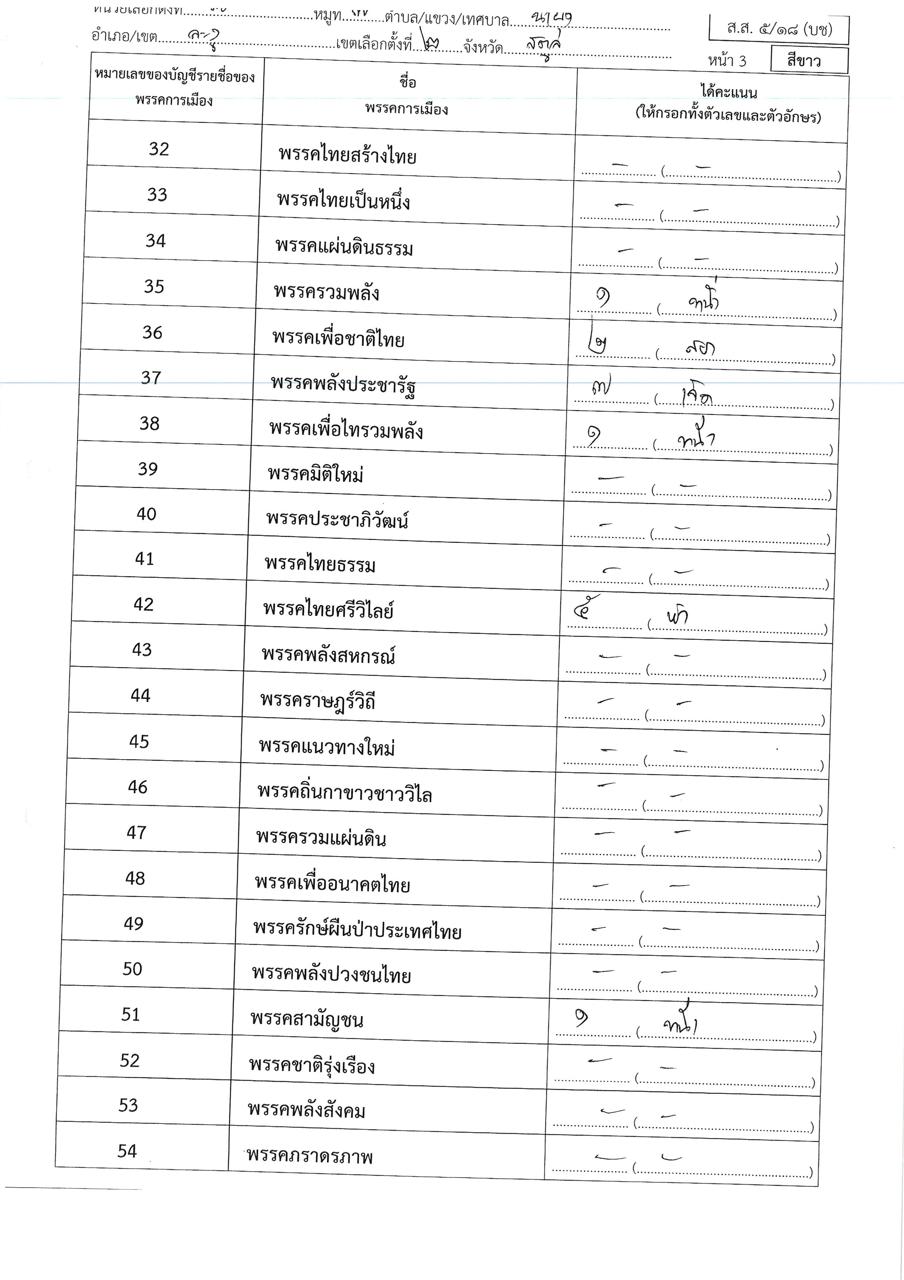 หน่วยเลือกตั้งที่ หมู่ที่ ตำบล/แขวง/เทศบาล
ส.ส. ๕/๑๘ (บช)
อำเภอ/เขต ละงู เขตเลือกตั้งที่ ๒ จังหวัด สตูล
หน้า 3 สีขาว
หมายเลขของบัญชีรายชื่อของพรรคการเมือง ชื่อพรรคการเมือง ได้คะแนน (ให้กรอกทั้งตัวเลขและตัวอักษร)
32 พรรคไทยสร้างไทย - (-)
33 พรรคไทยเป็นหนึ่ง - (-)
34 พรรคแผ่นดินธรรม - (-)
35 พรรครวมพลัง ๑ (หนึ่ง)
36 พรรคเพื่อชาติไทย ๒ (สอง)
37 พรรคพลังประชารัฐ ๗ (เจ็ด)
38 พรรคเพื่อไทรวมพลัง ๑ (หนึ่ง)
39 พรรคมิติใหม่ - (-)
40 พรรคประชาภิวัฒน์ - (-)
41 พรรคไทยธรรม - (-)
42 พรรคไทยศรีวิไลย์ ๕ (ห้า)
43 พรรคพลังสหกรณ์ - (-)
44 พรรคราษฎร์วิถี - (-)
45 พรรคแนวทางใหม่ - (-)
46 พรรคถิ่นกาขาวชาววิไล - (-)
47 พรรครวมแผ่นดิน - (-)
48 พรรคเพื่ออนาคตไทย - (-)
49 พรรครักษ์ผืนป่าประเทศไทย - (-)
50 พรรคพลังปวงชนไทย - (-)
51 พรรคสามัญชน ๑ (หนึ่ง)
52 พรรคชาติรุ่งเรือง - (-)
53 พรรคพลังสังคม - (-)
54 พรรคภราดรภาพ - (-)